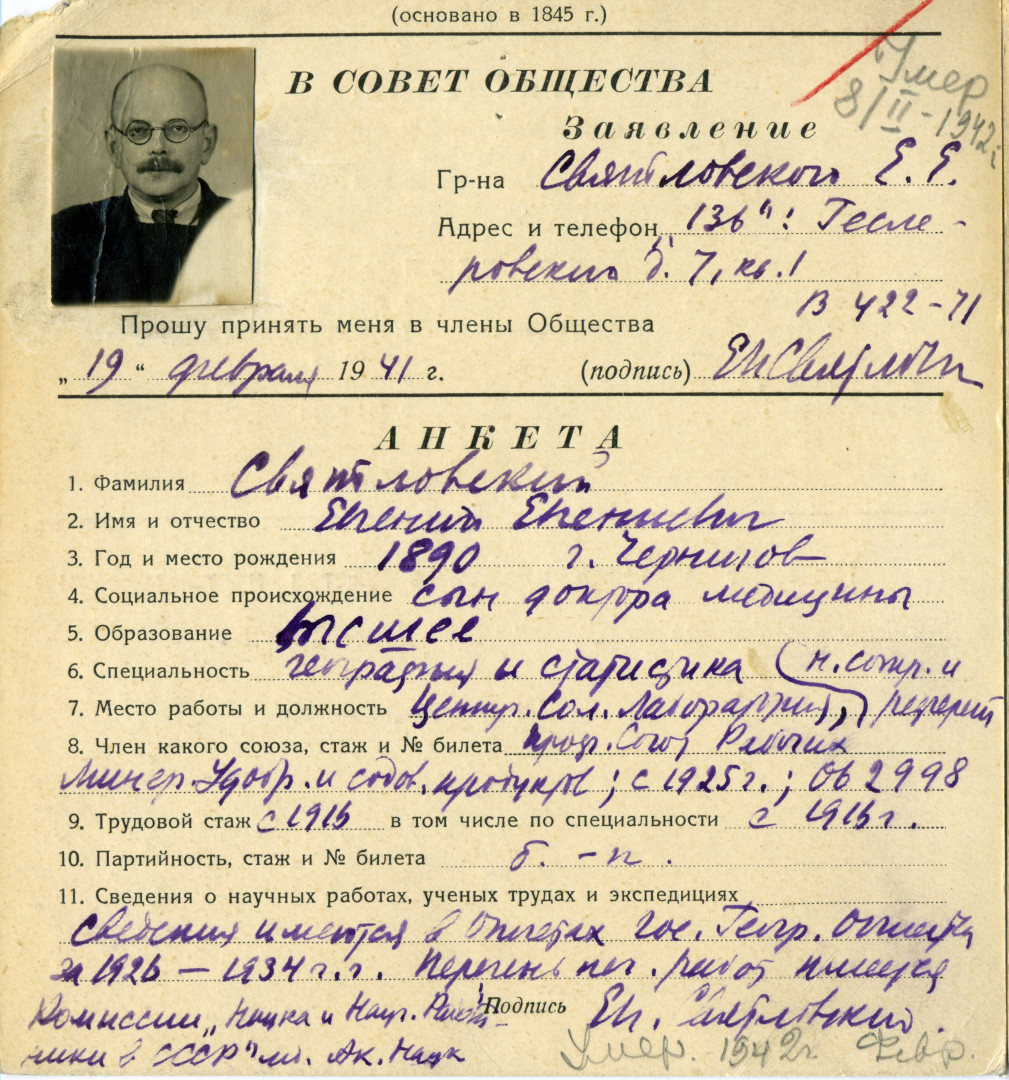 (основано в 1845 г.)
В СОВЕТ ОБЩЕСТВА
Умер
8/II-1942 г.
Заявление
Гр-на Святловского Е. Е.
Адрес и телефон 136 11: Гесле-
ровский д. 7, кв. 1
В 422-71
Прошу принять меня в члены Общества
„19“ февраля 1941 г. (подпись)
АНКЕТА
1. Фамилия Святловский
2. Имя и отчество Евгений Евгениевич
3. Год и место рождения 1890 г. Чернигов
4. Социальное происхождение сын доктора медицины
5. Образование высшее
6. Специальность география и статистика (н. сотр. и
7. Место работы и должность Центр. Сол. Лаборатория, референт
8. Член какого союза, стаж и № билета проф. Союз Рабочих
минер. удобр. и содов. продуктов; с 1925 г.; Об 2998
9. Трудовой стаж с 1916 в том числе по специальности с 1916 г.
10. Партийность, стаж и № билета б.-п.
11. Сведения о научных работах, ученых трудах и экспедициях
Сведения имеются в Отчетах Гос. Геогр. Общества
за 1926 — 1934 г.г. Перечень печ. работ имеется
Комиссии „Наука и Науч. Работ- Подпись Ев. Святловский.
ники в СССР" Ак. Наук
Умер. 1942 г. Февр.